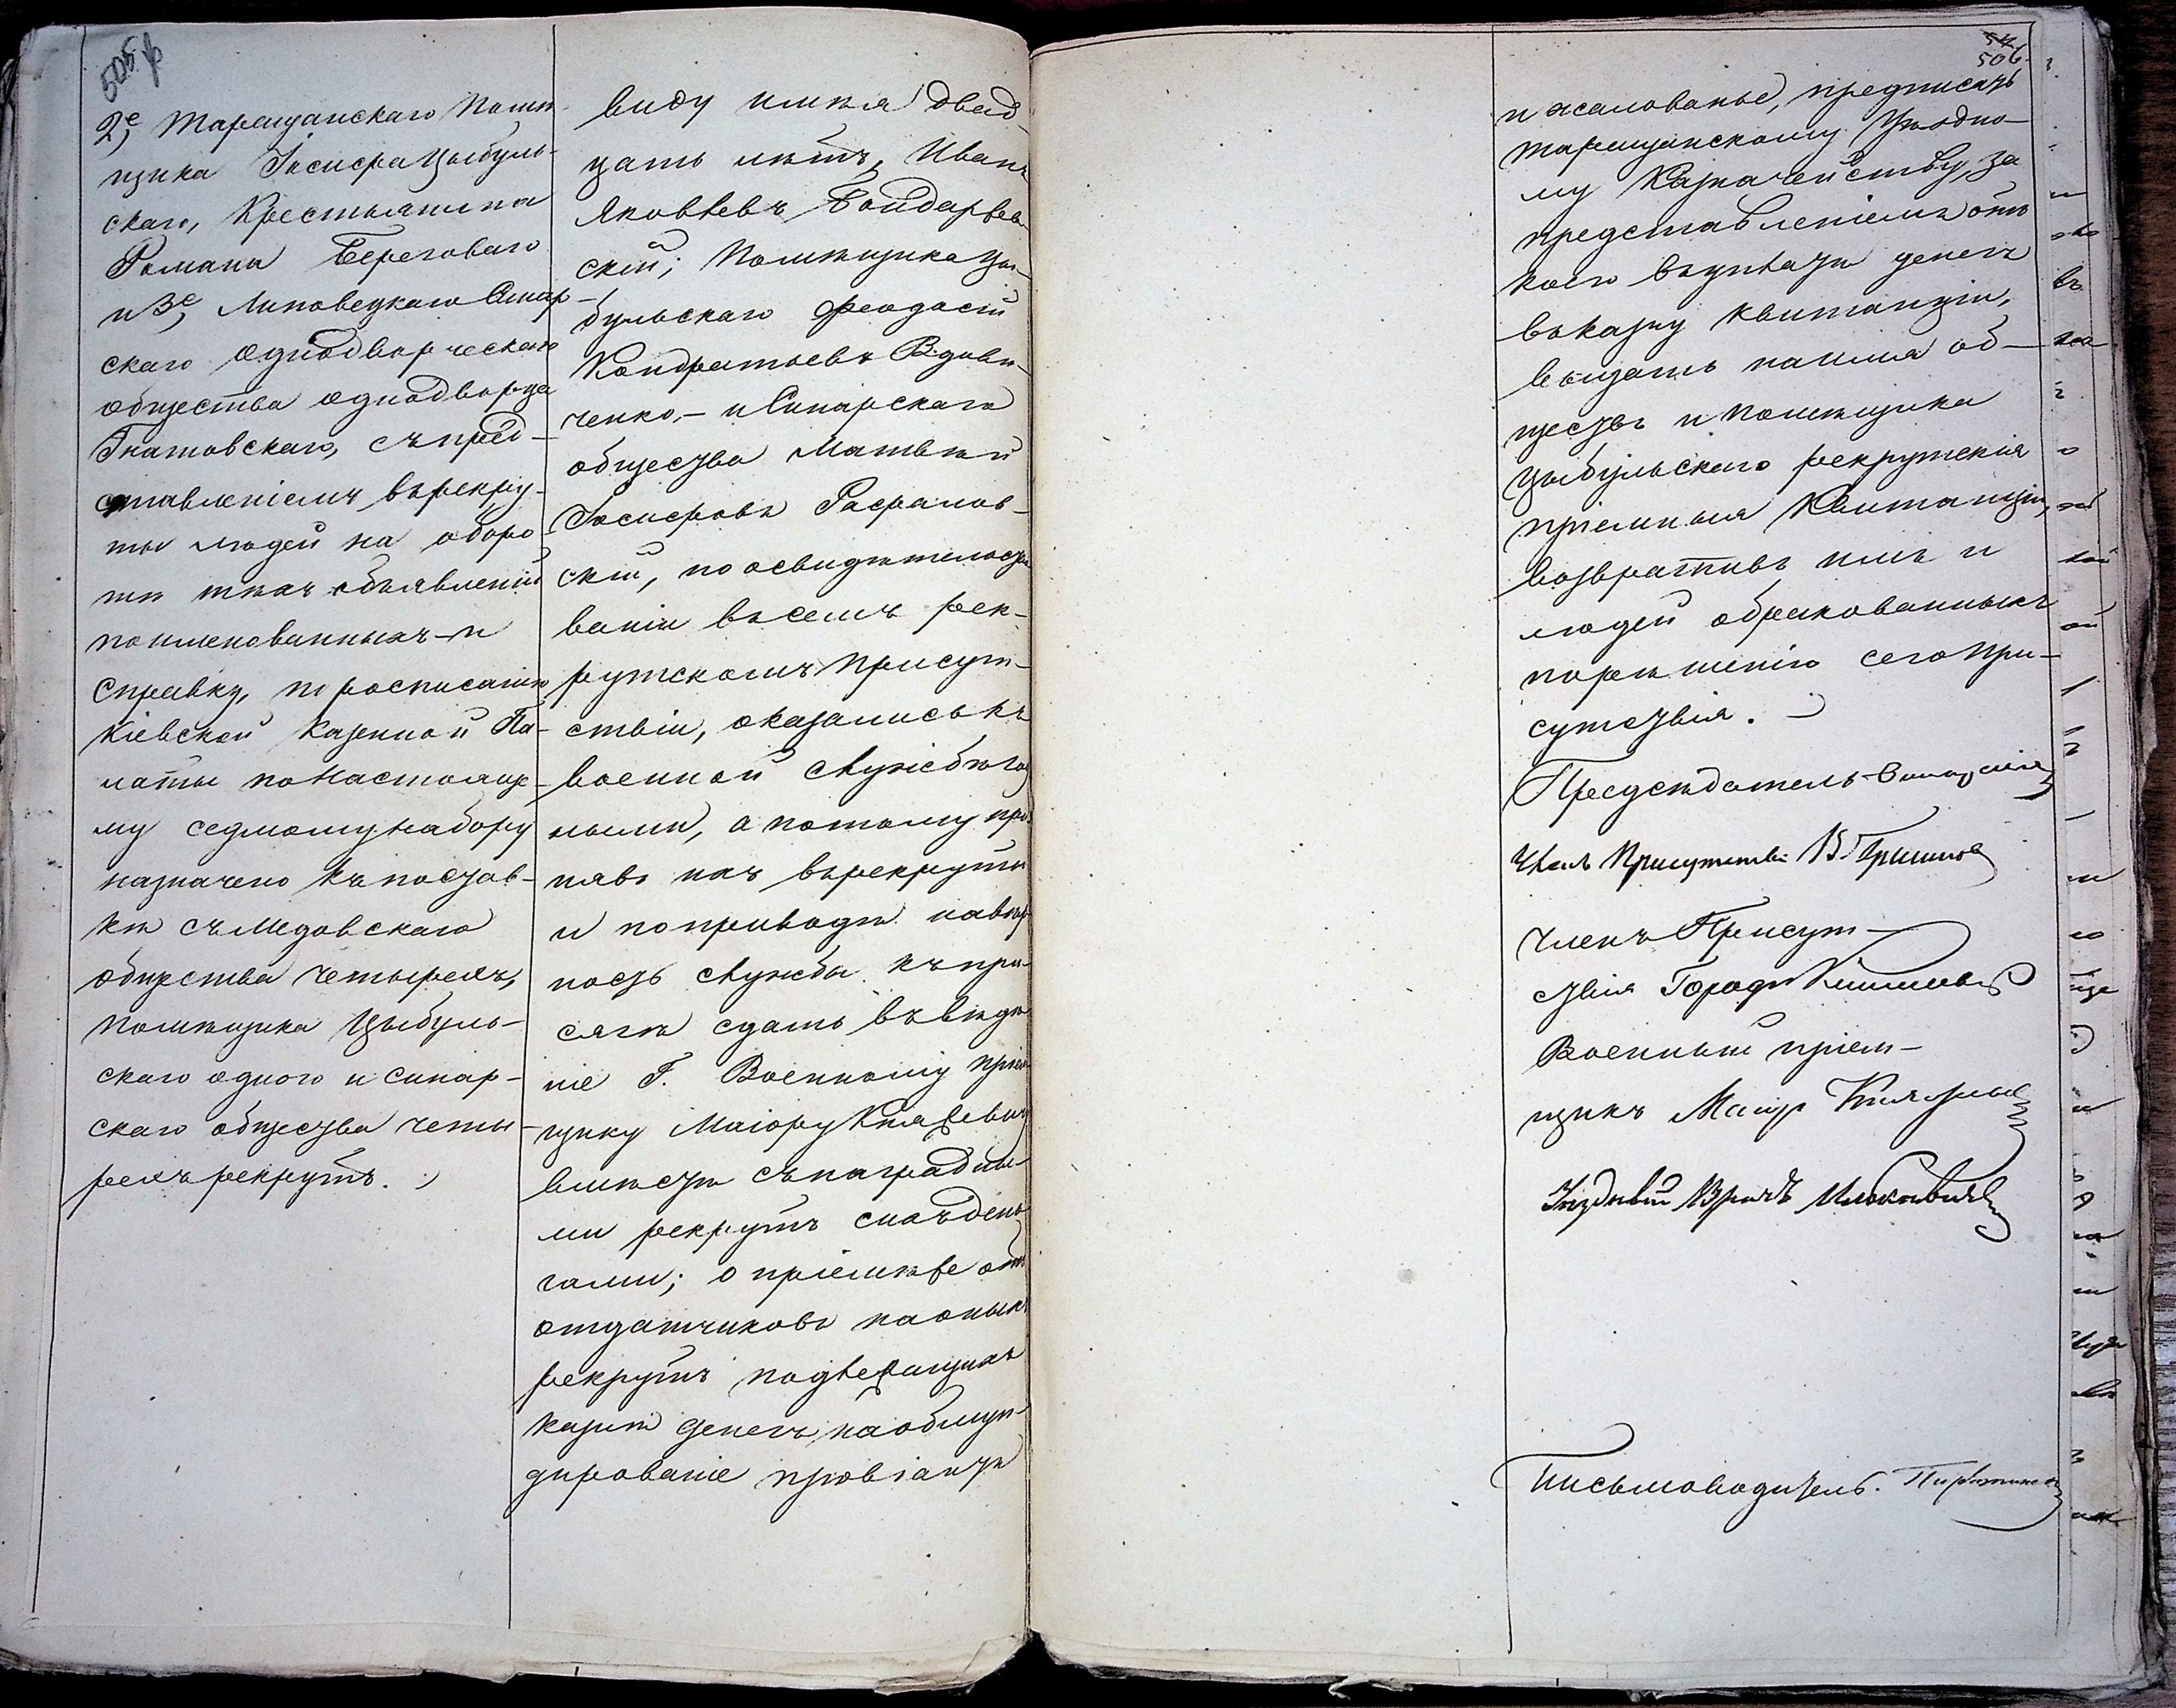 505
2е, Таращанскаго Помѣ-
щика Іосифа Цыбуль-
скаго, Крестьянина
Романа Береговаго
и 3е, Липовецкаго Синар-
скаго однодворческаго
общества однодворца
Гнатовскаго, съ пред-
ставленіемъ въ рекру-
ты людей на оборо
тѣ тѣхъ объявленій
поименованныхъ и
Справку, по росписанію
Кіевской Казенной Па-
латы по настояще-
му седмому набору
назначено къ постав-
кѣ съ Медовскаго
общества четырехъ,
помѣщика Цыбуль-
скаго одного и синар-
скаго общества четы-
рехъ рекрутъ.
виду имѣя двад-
цать лѣтъ, Иванъ
Яковлевъ Бондарев
скій; Помѣщика Цы-
бульскаго Феодосій
Кондратьевъ Вдови-
ченко, - и Синарскаго
общества Матвѣй
Іосифовъ Рафалов-
скій, по освидѣтельство
ваніи въ семъ рек-
рутскомъ присут-
ствіи, оказались къ
военной службѣ год
ными, а потому при
нявъ ихъ въ рекруты
и по приводѣ на вѣр
ность службы къ при-
сягѣ сдать въ вѣдѣ
ніе Г. Военному пріем
щику Маіору Князевичу
вмѣстѣ съ наградны-
ми рекрутъ сихъ день
гами; о пріемѣ же отъ
отдатчиковъ на оныхъ
рекрутъ подлежащихъ
казнѣ денегъ на обмун-
дированіе провіантъ
54
506.
и жалованье, предписать
Таращанскому Уѣздно-
му Казначейству, за
представленіемъ отъ
коего въ уплатѣ денегъ
въ казну квитанціи,
выдать на имя об-
ществъ и помѣщика
Цыбульскаго рекрутскія
пріемныя Квитанціи,
возвративъ имъ и
людей обракованныхъ
по рѣшенію сего При-
сутствія.
Предсѣдатель
Членъ Присутствія В. Гришковъ
Членъ Присут-
ствія Город
Военный пріем-
щикъ Маіор Князевичъ
Уѣздный Врачъ
Письмоводитель.